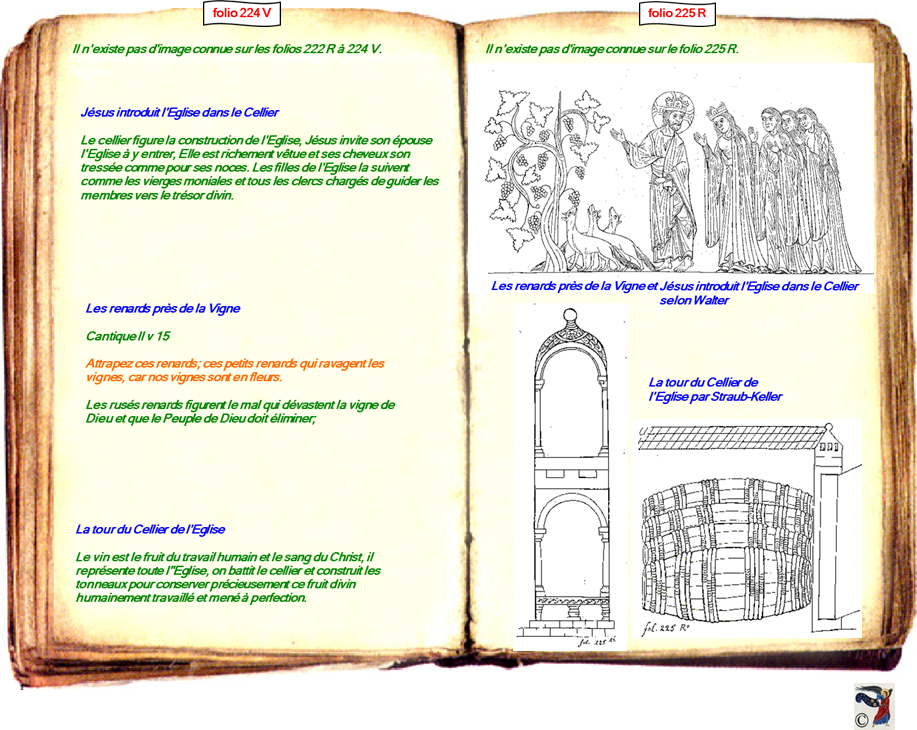 folio 224 V
Il n'existe pas d'image connue sur les folios 222 R à 224 V.
Jésus introduit l'Eglise dans le Cellier
Le cellier figure la construction de l'Eglise, Jésus invite son épouse
l'Eglise à y entrer, Elle est richement vêtue et ses cheveux son
tressée comme pour ses noces. Les filles de l'Eglise la suivent
comme les vierges moniales et tous les clercs chargés de guider les
membres vers le trésor divin.
Les renards près de la Vigne
Cantique II v 15
Attrapez ces renards; ces petits renards qui ravagent les
vignes, car nos vignes sont en fleurs.
Les rusés renards figurent le mal qui dévastent la vigne de
Dieu et que le Peuple de Dieu doit éliminer;
La tour du Cellier de l'Eglise
Le vin est le fruit du travail humain et le sang du Christ, il
représente toute l"Eglise, on battît le cellier et construit les
tonneaux pour conserver précieusement ce fruit divin
humainement travaillé et mené à perfection.
folio 225 R
Il n'existe pas d'image connue sur le folio 225 R.
Les renards près de la Vigne et Jésus introduit l'Eglise dans le Cellier
selon Walter
La tour du Cellier de
l'Eglise par Straub-Keller
fol. 225 R°
fol. 225 R°
©